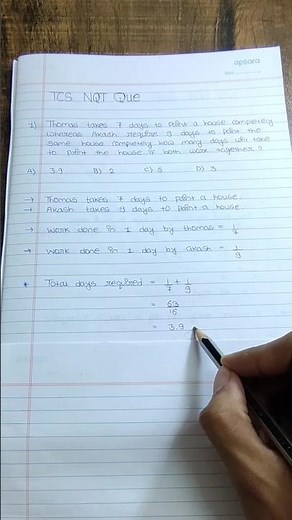 apsara
TCS NQT Que
1) Thomas takes 7 days to paint a house completely
whereas Akash require 9 days to paint the
same house completely how many days will take
to paint the house if both work together?
A) 3.9 B) 2 C) 5 D) 3
→ Thomas takes 7 days to paint a house.
→ Akash takes 9 days to paint a house
→ work done in 1 day by thomas = 1/7
→ work done in 1 day by akash = 1/9
* Total days required = 1/7 + 1/9
= 63/16
= 3.9